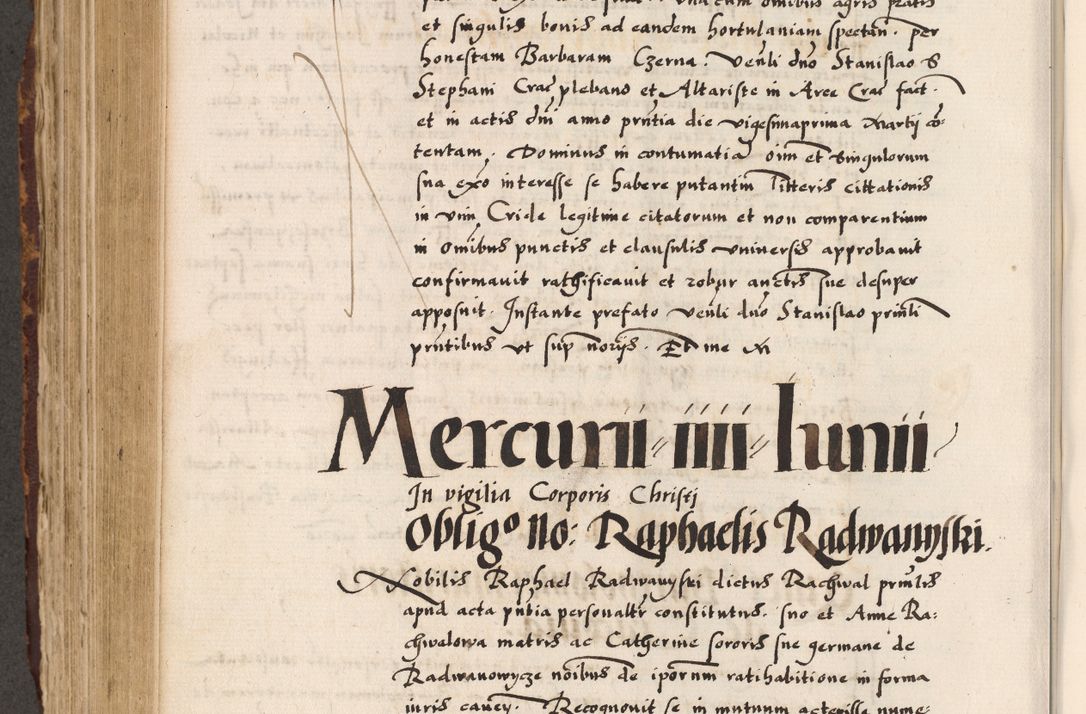 et singulis bonis ad eandem hortulaniam spectan. per
honestam Barbaram Czerna. Venli dno Stanislao S
Stephani Crac plebano et Altariste in Arce Crac fact.
et in actis dni anno prntia die vigesimaprima Martij co-
tentam. Dominus in contumatia oim et singulorum
sua exo interesse se habere putantim litteris cittationis
in vim Cride legitime citatorum et non comparentium
in omibus punctis et clausulis universis approbavit
confirmavit rathificavit et robur auctris sue desuper
apposuit. Instante prefato venli dno Stanislao prinli
prntibus ut sup norijs. Et me
Mercurii iiii Iunii
In vigilia Corporis Christj
Obligo No: Raphaelis Radwanyski.
Nobilis Raphael Radwanyski dictus Rachwal prinlis
apud acta pntia personaltr constitutus. suo et Anne Ra:
chwalowa matris ac Catherine sororis sue germane de
Radwanowycze noibus de iporum ratihabitione in forma
iuris cauen. Recognovit se in mutuum accepisse nume: